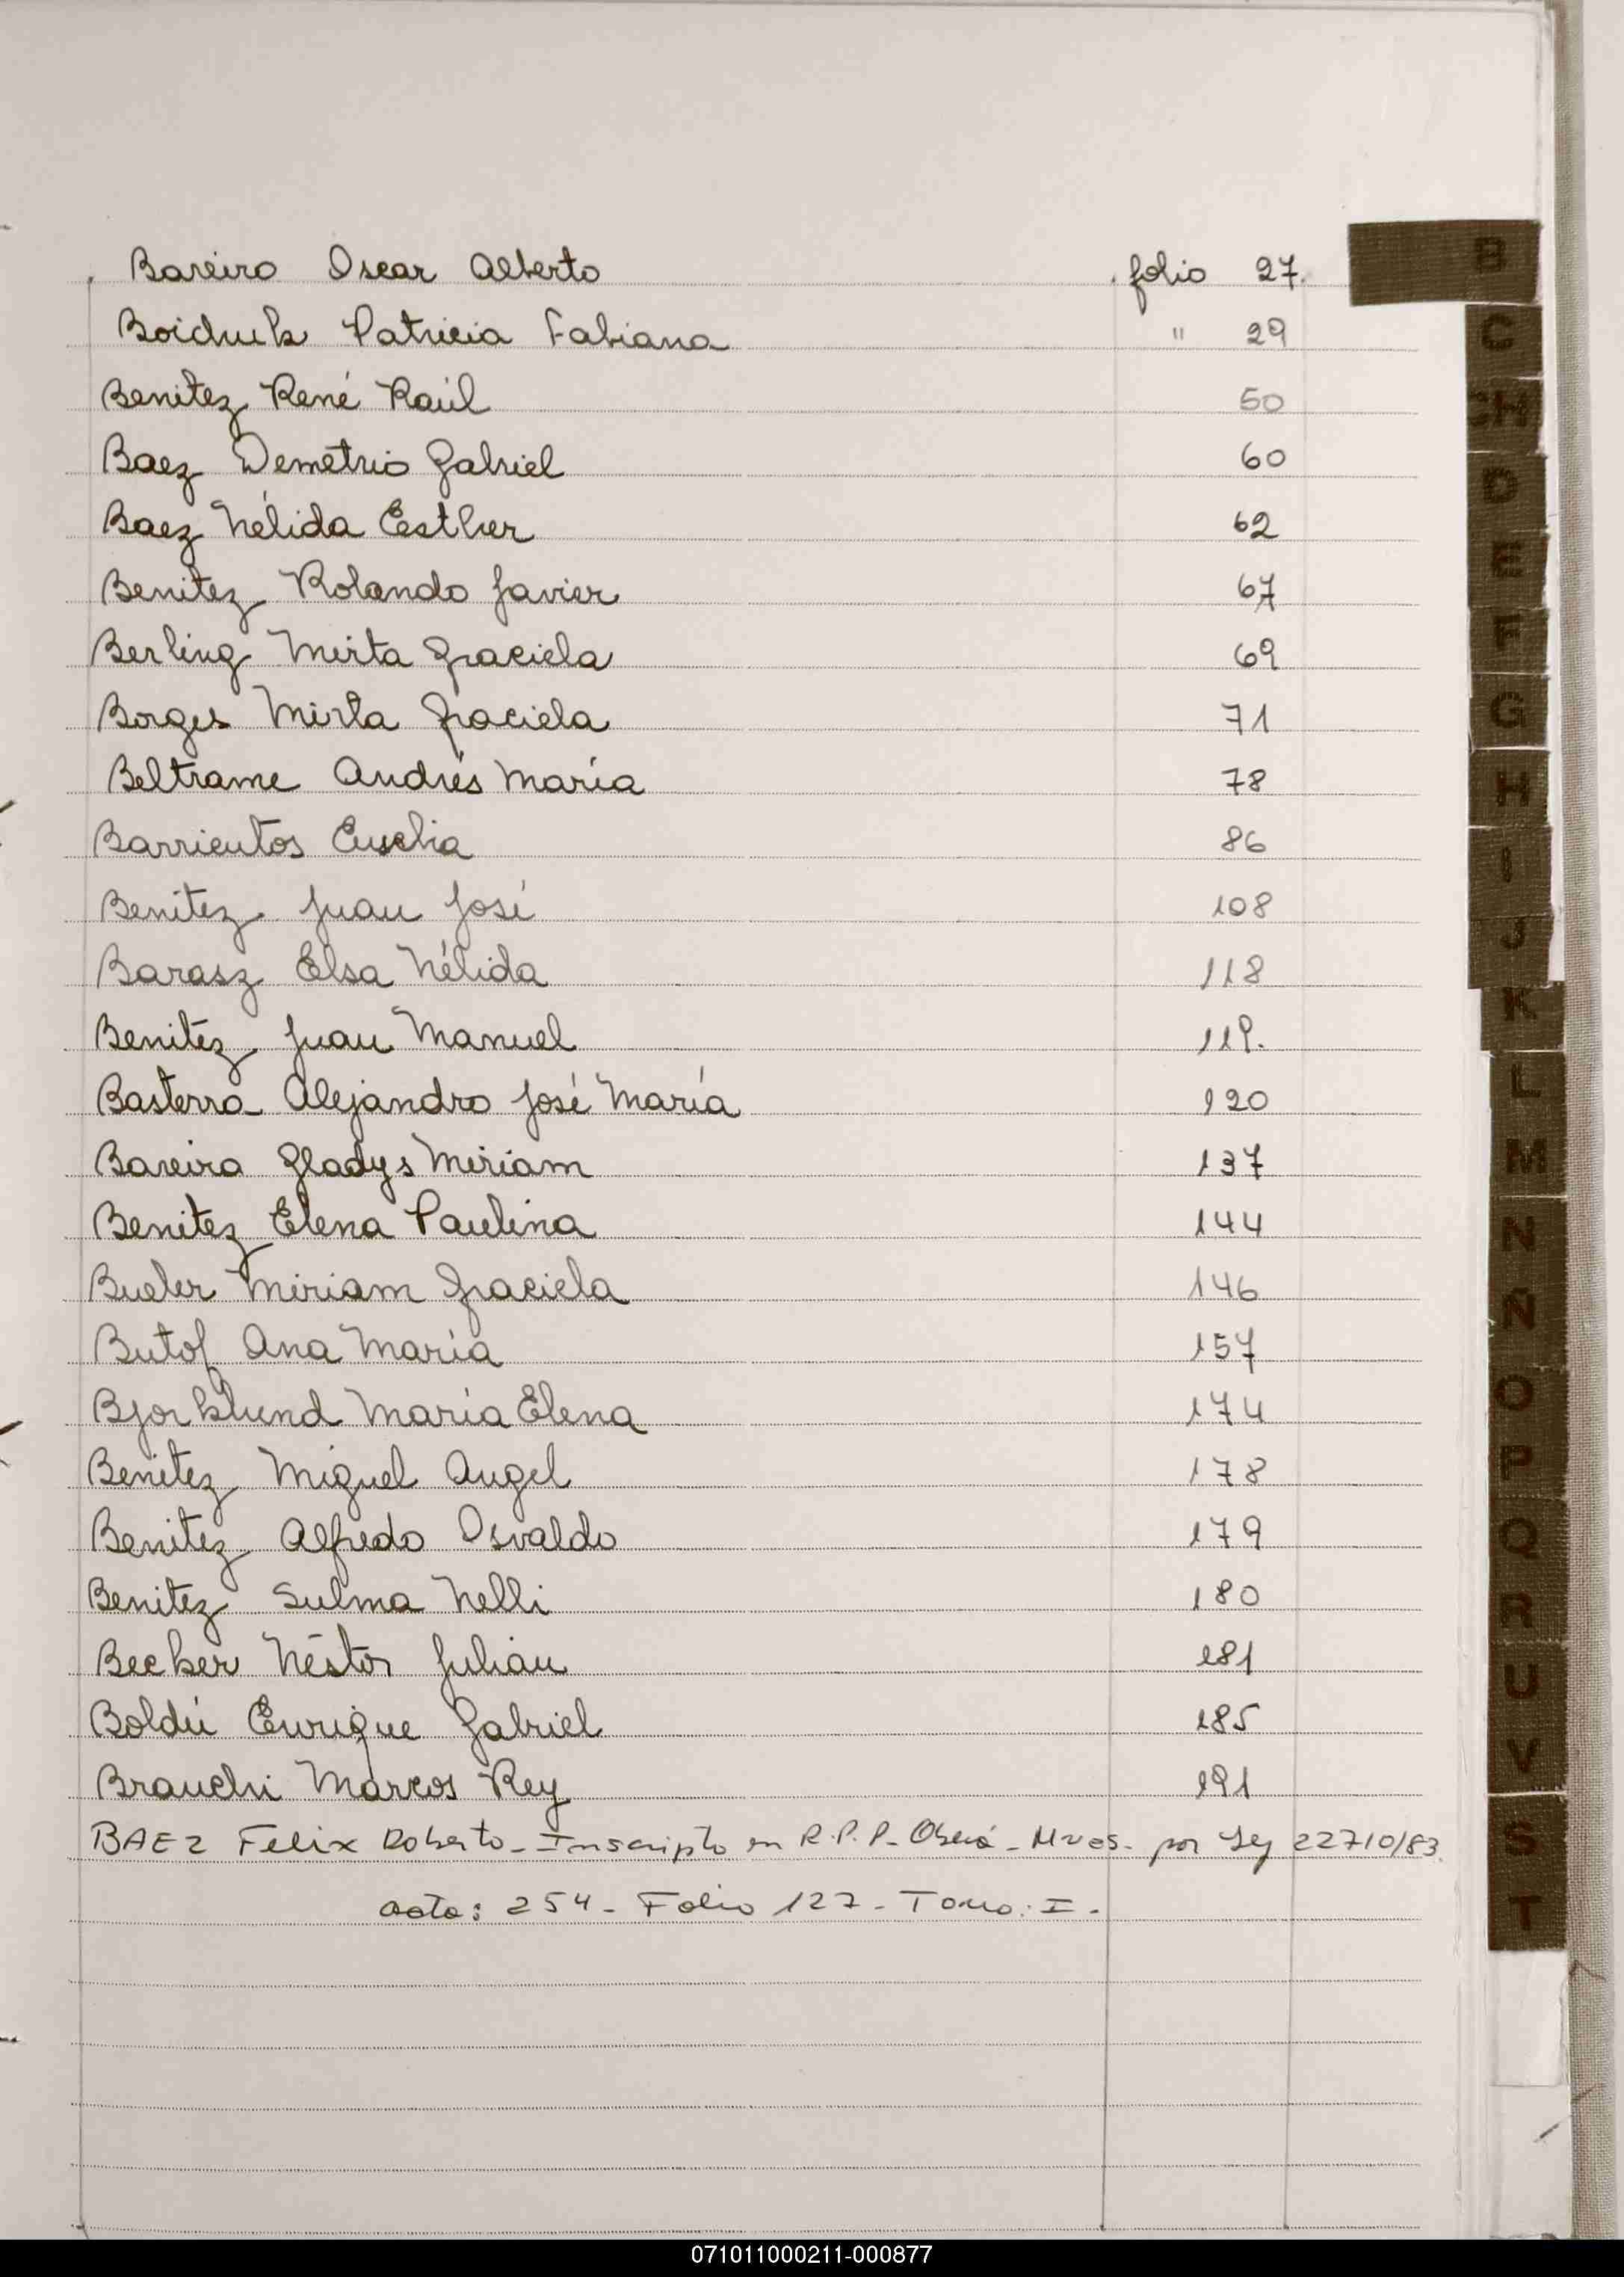 Bareiro Oscar Alberto folio 27.
Boichuk Patricia Fabiana " 29
Benitez René Raúl 50
Baez Demetrio Gabriel 60
Baez Nélida Esther 62
Benitez Rolando Javier 67
Berling Mirta Graciela 69
Borges Mirta Graciela 71
Beltrame Andrés María 78
Barrientos Eusebia 86
Benitez Juan José 108
Barasz Elsa Nélida 118
Benitez Juan Manuel 119.
Basterra Alejandro José María 120
Bareiro Gladys Miriam 137
Benitez Elena Paulina 144
Bueler Miriam Graciela 146
Butof Ana María 157
Bjorklund María Elena 174
Benitez Miguel Angel 178
Benitez Alfredo Osvaldo 179
Benitez Sulma Nelli 180
Becker Néstor Julián 181
Boldú Enrique Gabriel 185
Brauchi Marcos Rey 191
BAEZ Felix Roberto - Inscripto en R.P.P. - Oberá - Mnes. por Ley 22710/83.
acta: 254 - Folio 127 - Tomo: I -
B
C
CH
D
E
F
G
H
I
J
K
L
M
N
Ñ
O
P
Q
R
U
V
S
T
071011000211-000877